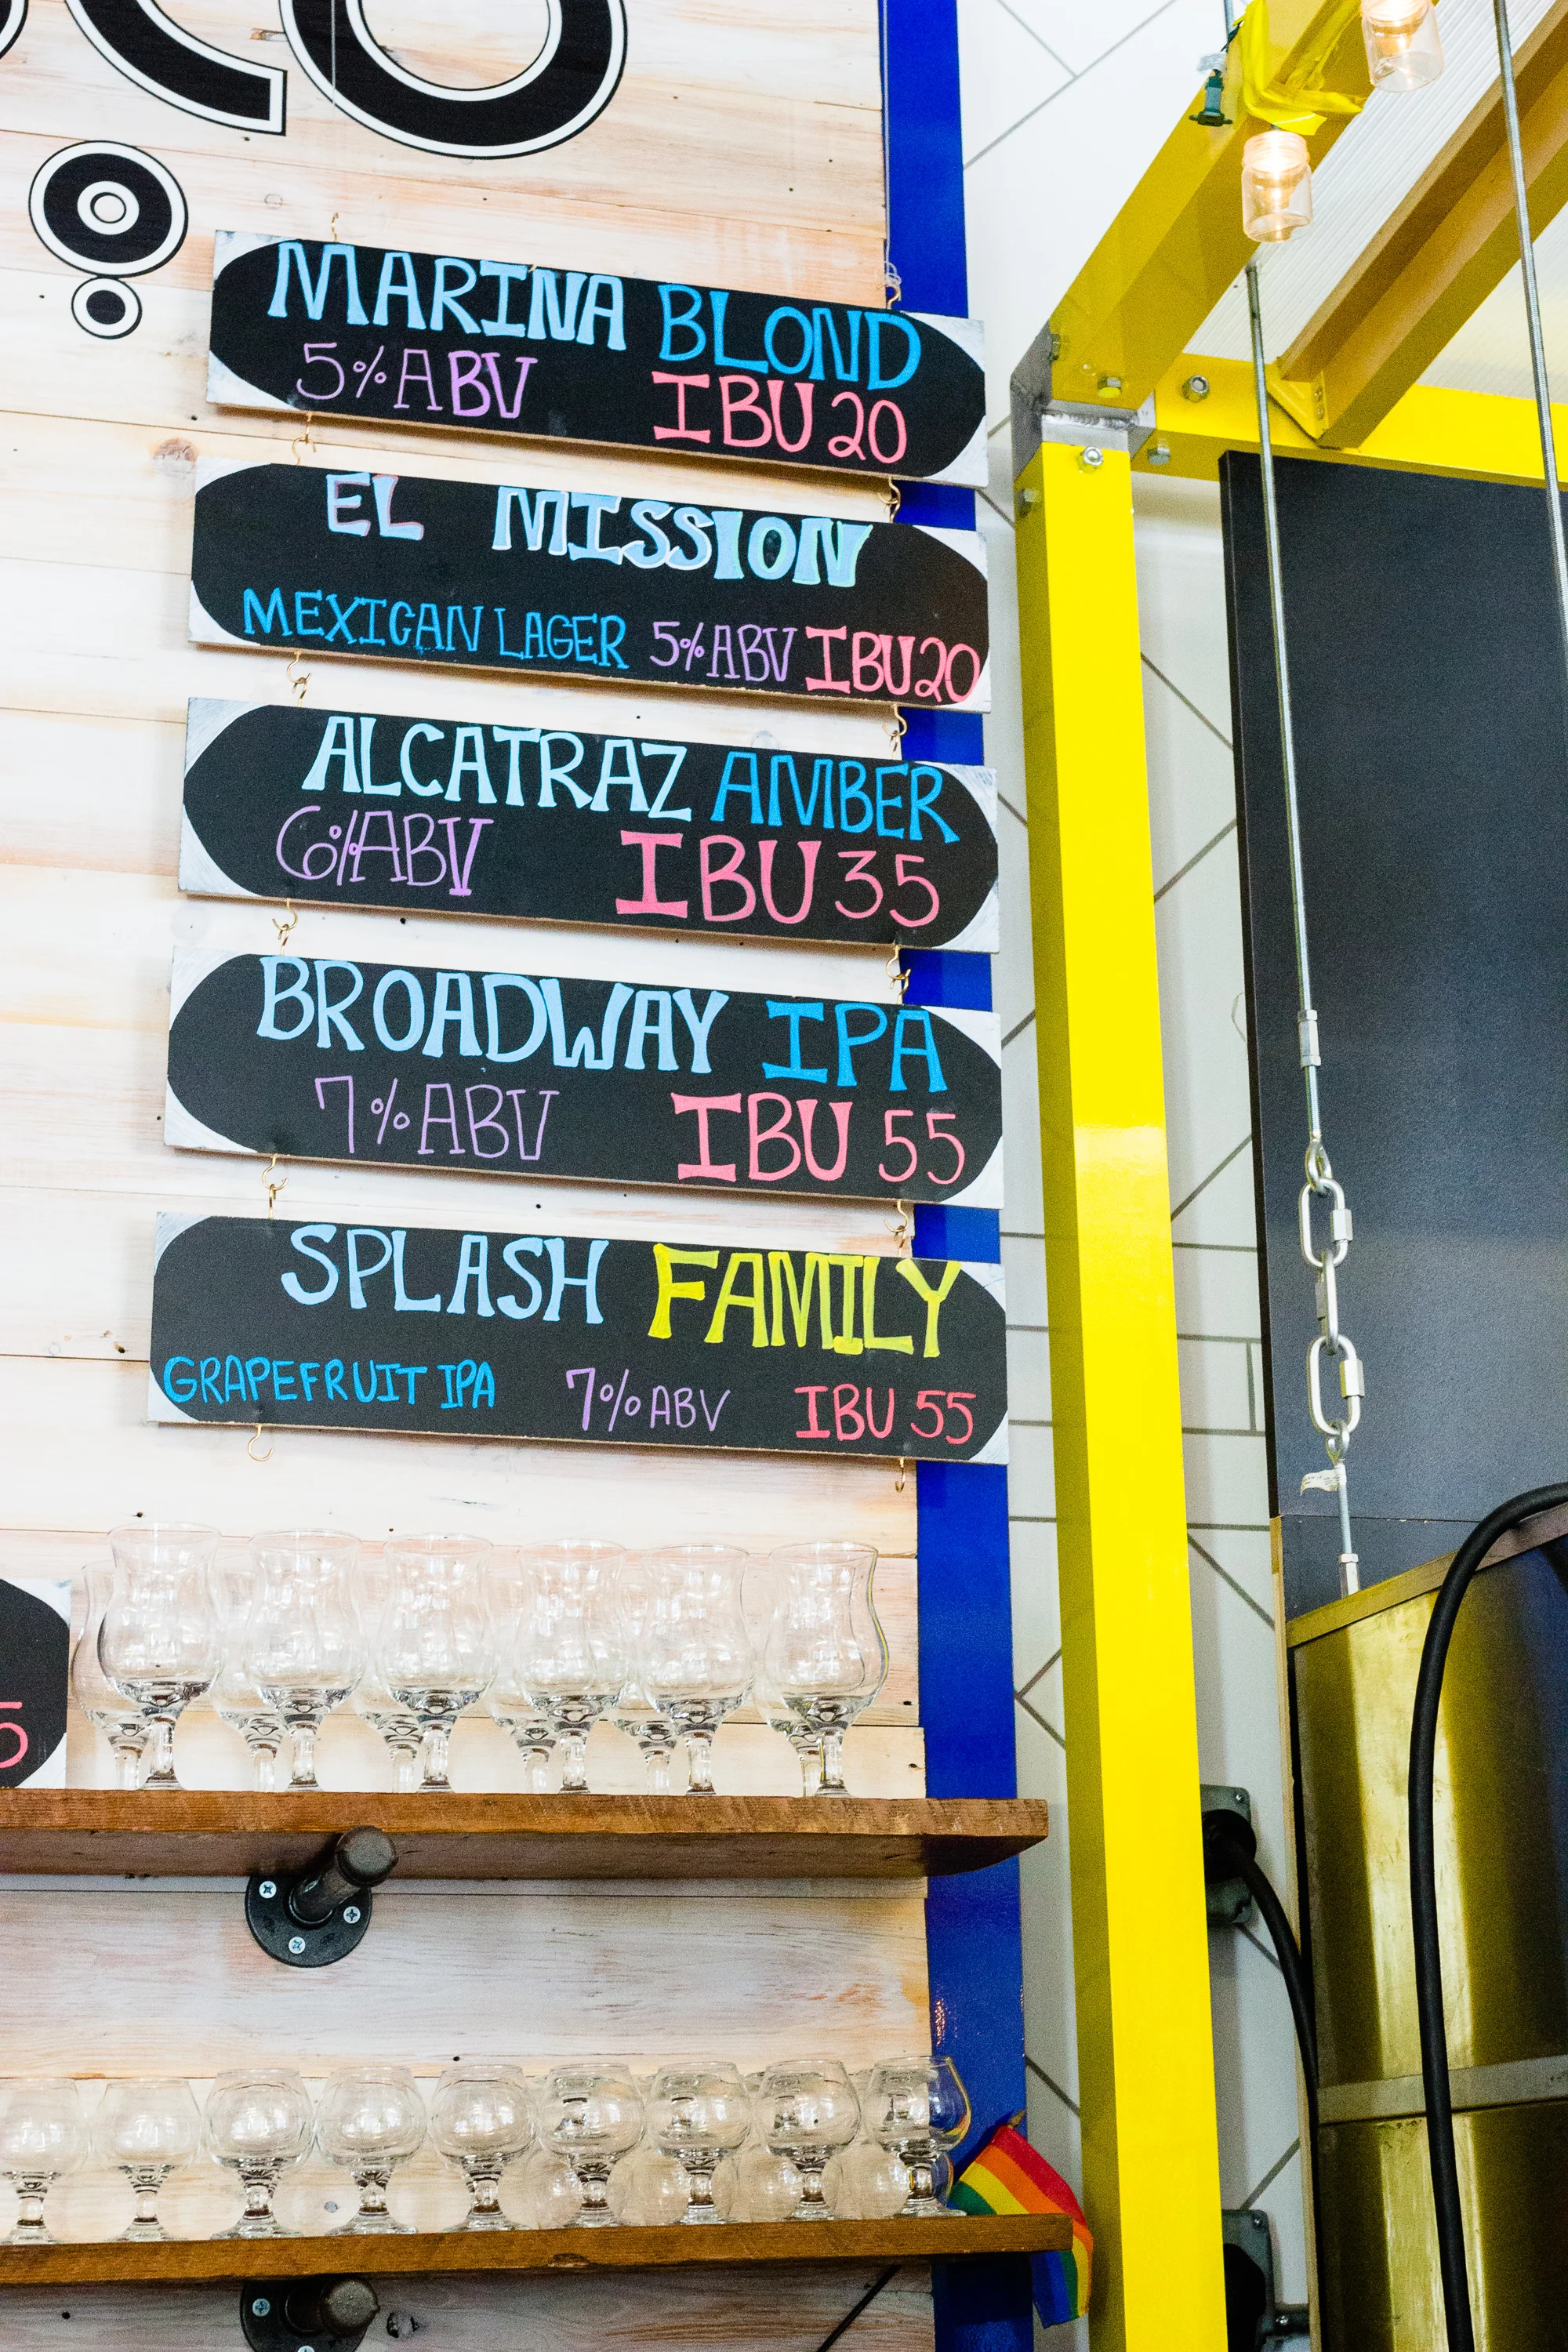 MARINA BLOND
5% ABV IBU 20
EL MISSION
MEXICAN LAGER 5% ABV IBU 20
ALCATRAZ AMBER
6% ABV IBU 35
BROADWAY IPA
7% ABV IBU 55
SPLASH FAMILY
GRAPEFRUIT IPA 7% ABV IBU 55
5